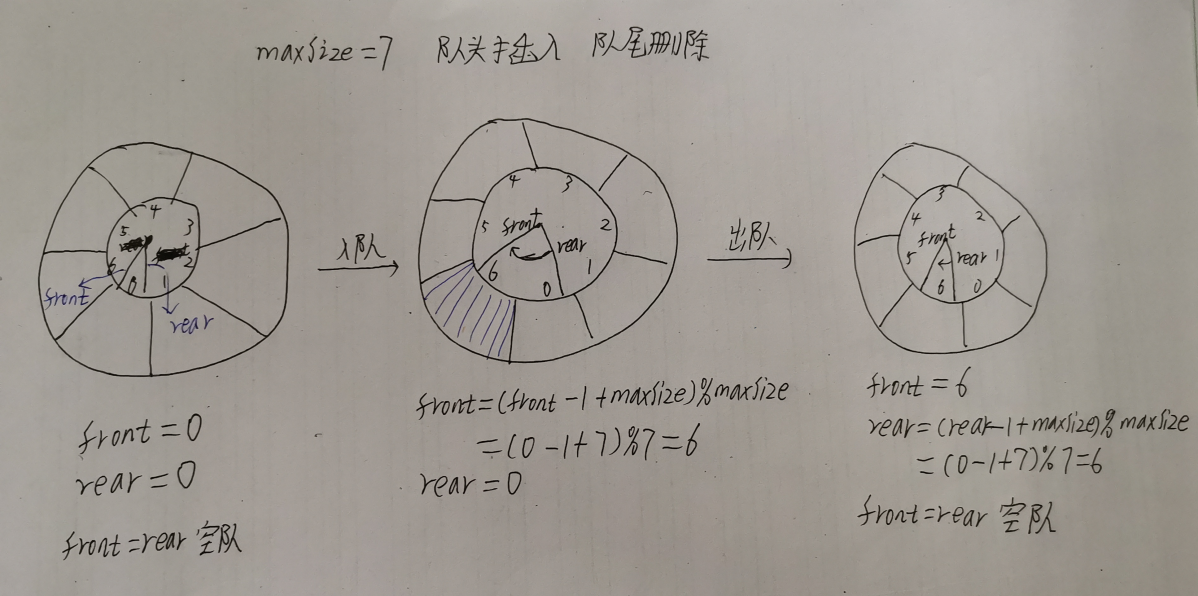 maxSize=7 队头插入 队尾删除
4
5
3
6
2
0
1
front
rear
入队
4
3
5
front
2
rear
6
1
0
出队
3
4
2
front
5
rear
1
6
0
front=0
rear=0
front=rear 空队
front=(front-1+maxSize)%maxSize
=(0-1+7)%7=6
rear=0
front=6
rear=(rear-1+maxSize)%maxSize
=(0-1+7)%7=6
front=rear 空队